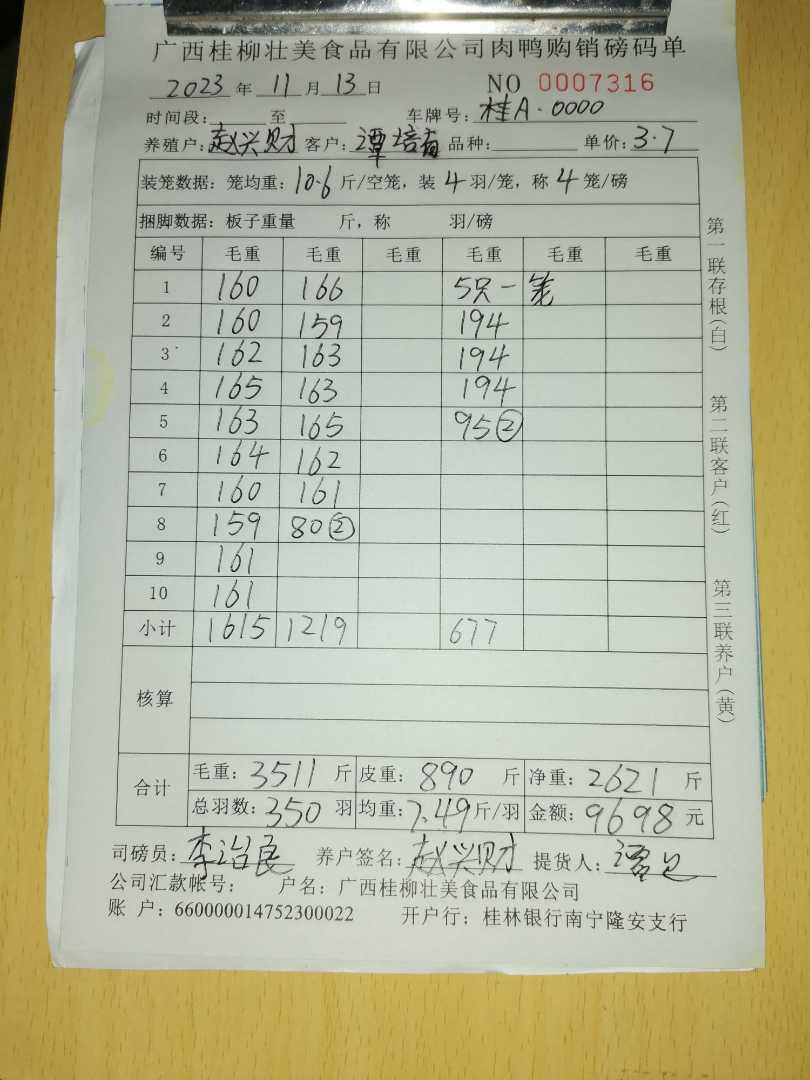 广西桂柳壮美食品有限公司肉鸭购销磅码单
2023 年 11 月 13 日 NO 0007316
时间段: 至 车牌号: 桂A·0000
养殖户: 赵兴财 客户: 潭培 品种: 单价: 3·7
装笼数据: 笼均重: 10·6 斤/空笼, 装 4 羽/笼, 称 4 笼/磅
捆脚数据: 板子重量 斤, 称 羽/磅
编号 毛重 毛重 毛重 毛重 毛重 毛重
1 160 166 5只一笼
2 160 159 194
3 162 163 194
4 165 163 194
5 163 165 95②
6 164 162
7 160 161
8 159 80②
9 161
10 161
小计 1615 1219 677
核算
合计 毛重: 3511 斤 皮重: 890 斤 净重: 2621 斤
总羽数: 350 羽 均重: 7.49 斤/羽 金额: 9698 元
司磅员: 李治良 养户签名: 赵兴财 提货人:
公司汇款帐号: 户名: 广西桂柳壮美食品有限公司
账 户: 660000014752300022 开户行: 桂林银行南宁隆安支行
第一联存根(白)
第二联客户(红)
第三联养户(黄)